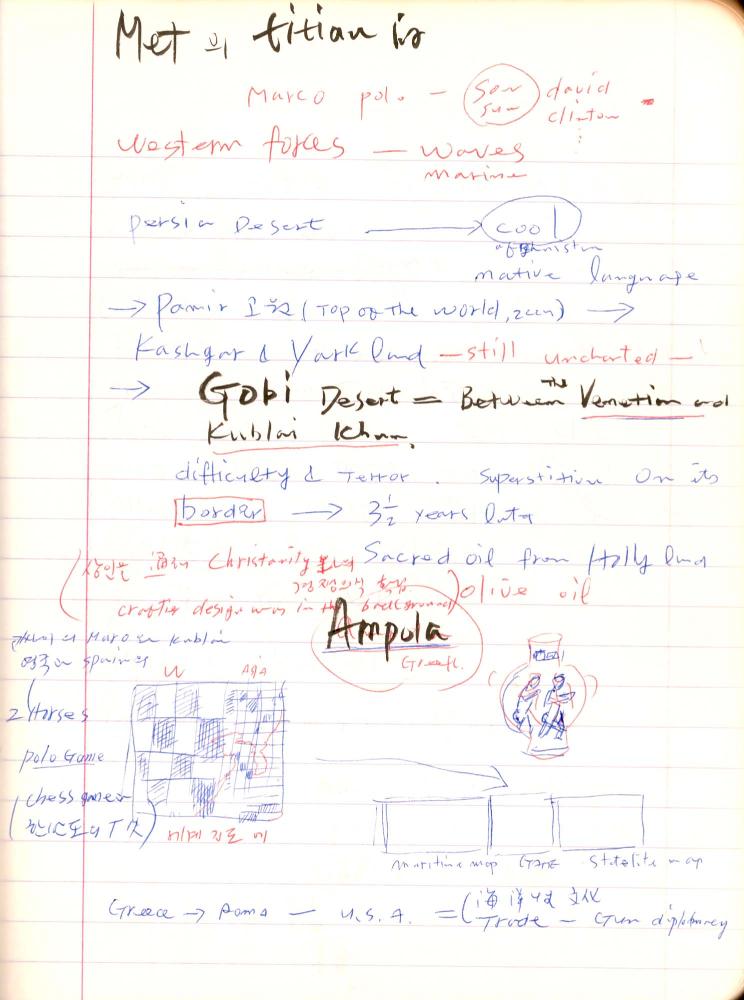 Met 의 titian is
Marco polo - Son sun david clinton
Western forces - waves
marine
persia Desert → cool
afghanistan
native language
→ Pamir 고원 (Top of the world, 2000) →
Kashgar & Yark land - still uncharted -
→ Gobi Desert = Between The Venetian and
Kublai Khan.
difficulty & Terror. Superstition On its
border → 3 1/2 years late
Sacred oil from Holly land
olive oil
상인을 通해 Christianity
crafts design was in the background)
Ampula
Greek.
Maro Kublai
영국 spain의
W Asia
2 Horses
polo Game
chess game
세계 지도 에
maritime map Game Statelite map
Greece → Roma - U.S.A. = (海洋 文化
Trade - Gun diplomacy